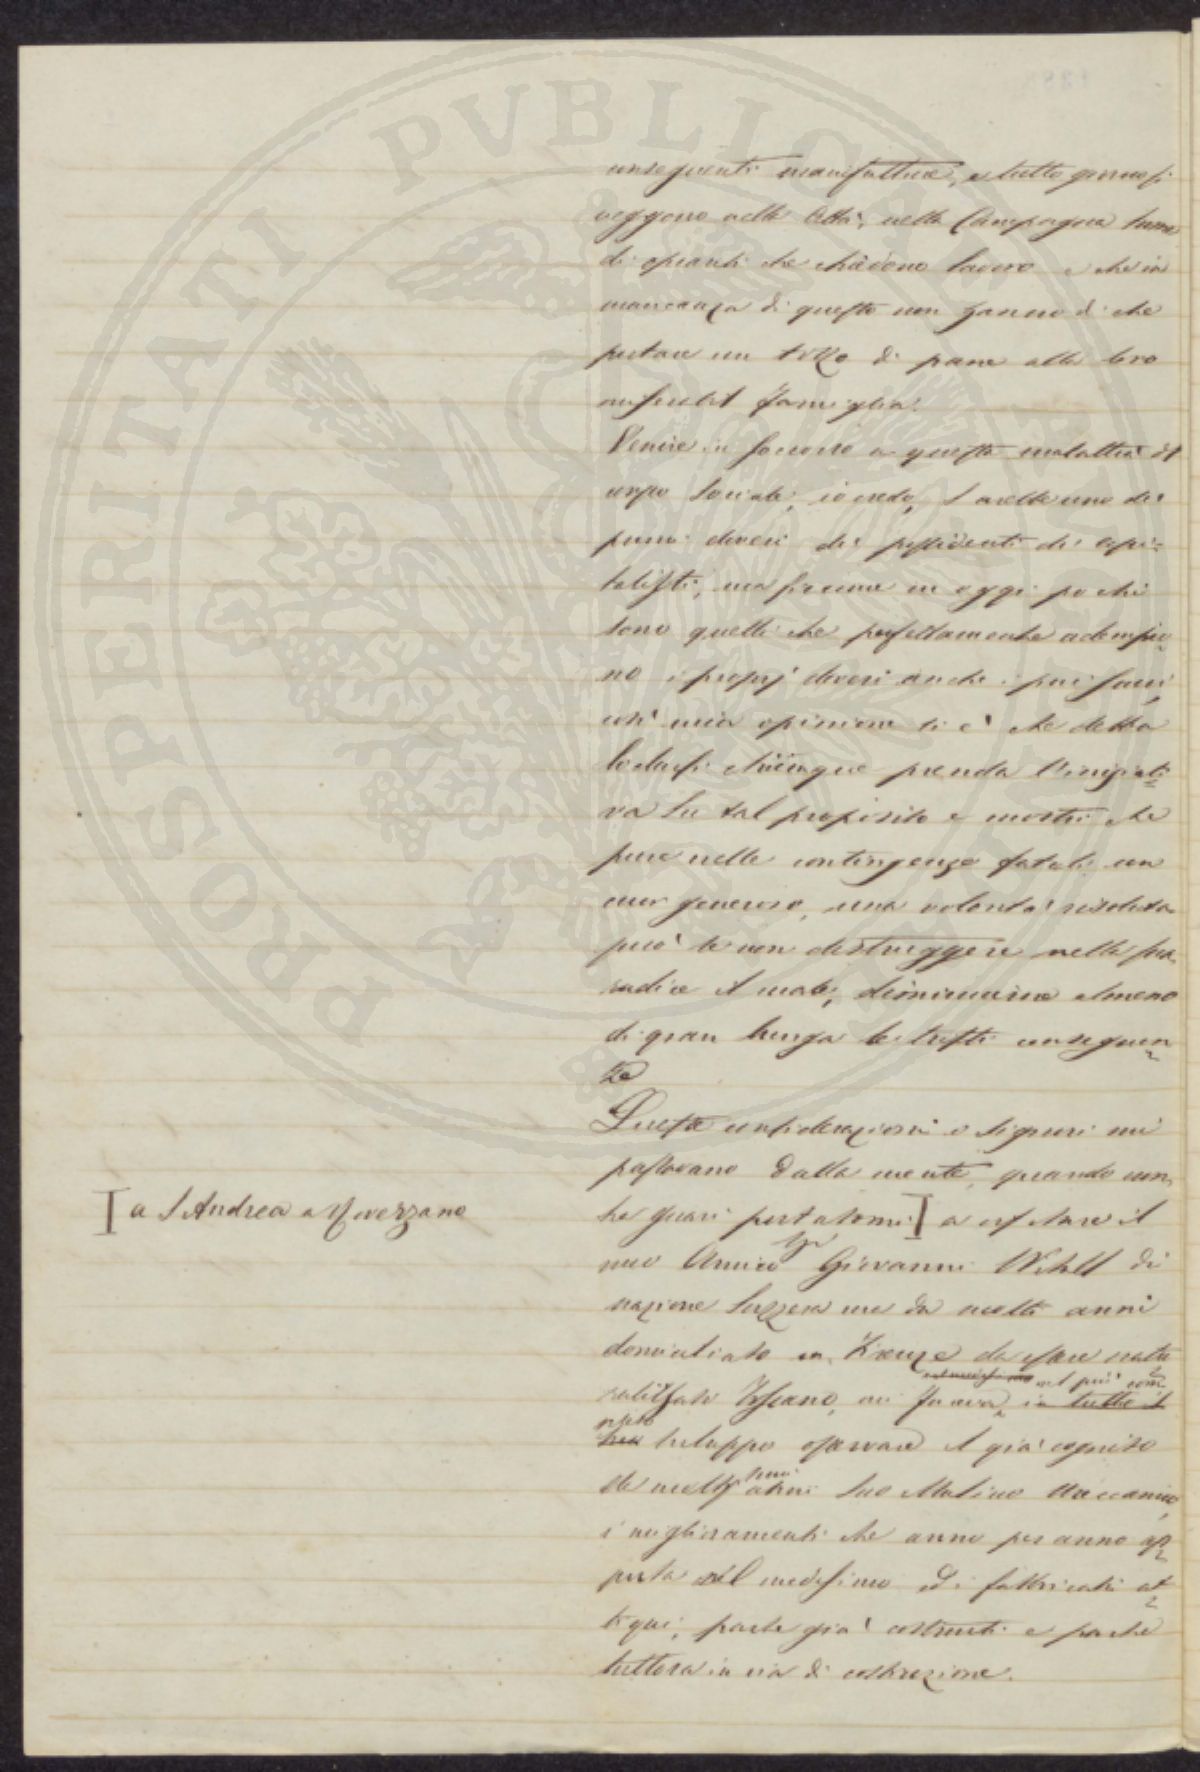 PROSPERITATI PVBLICAE
conseguenti manifatture, e tutto giorno si
veggono nelle Città, nella Campagna turme
di operanti che chiedono lavoro e che in
mancanza di questo non hanno di che
portare un tozzo di pane alla loro
famiglia.
Venire in soccorso a questa malattia del
corpo Sociale, io credo, Sarebbe uno dei
primi doveri dei possidenti dei capi=
talisti, ma siccome in oggi pochi
sono quelli che perfettamente adempio
no i proprj doveri anche i più sacri,
così mia opinione si è che debba
lodarsi chiunque prenda l'iniziati
va Su tal proposito e mostri che
pure nelle contingenze fatali un
cuor generoso, una volontà risoluta
può se non distruggere nella sua
radice il male, diminuirne almeno
di gran lunga le triste conseguen
ze
Queste considerazioni o Signori mi
passavano dalla mente, quando non
ha guari portatomi a visitare il
a S Andrea a Rovezzano
mio Amico Sigr Giovanni di
nazione Svizzera ma da molti anni
domiciliato in Firenze da essere natu
ralizzato Toscano, mi faceva, in tutto il
nel più com
pleto suo sviluppo osservare il già cognito
da molti anni Suo Molino Meccanico
i miglioramenti che anno per anno ap
porta al medesimo ed i fabbricati at
tigui, parte già costruiti e parte
tuttora in via di costruzione.